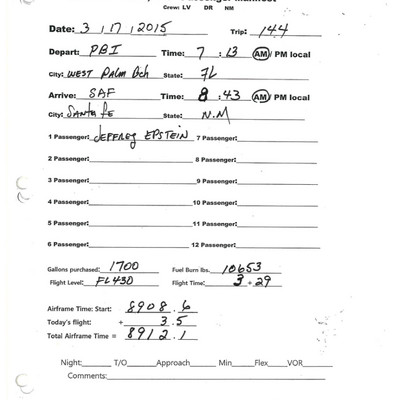 Crew: LV DR NM
Date: 3 / 17 / 2015 Trip: 144
Depart: PBI Time: 7 : 13 AM / PM local
City: WEST PALM Bch State: FL
Arrive: SAF Time: 8 : 43 AM / PM local
City: SANTA Fe State: N.M
1 Passenger: JEFFREY EPSTEIN 7 Passenger:
2 Passenger: 8 Passenger:
3 Passenger: 9 Passenger:
4 Passenger: 10 Passenger:
5 Passenger: 11 Passenger:
6 Passenger: 12 Passenger:
Gallons purchased: 1700 Fuel Burn lbs. 10653
Flight Level: FL430 Flight Time: 3 + 29
Airframe Time: Start: 8908.6
Today's flight: + 3.5
Total Airframe Time = 8912.1
Night: T/O Approach Min Flex VOR
Comments: